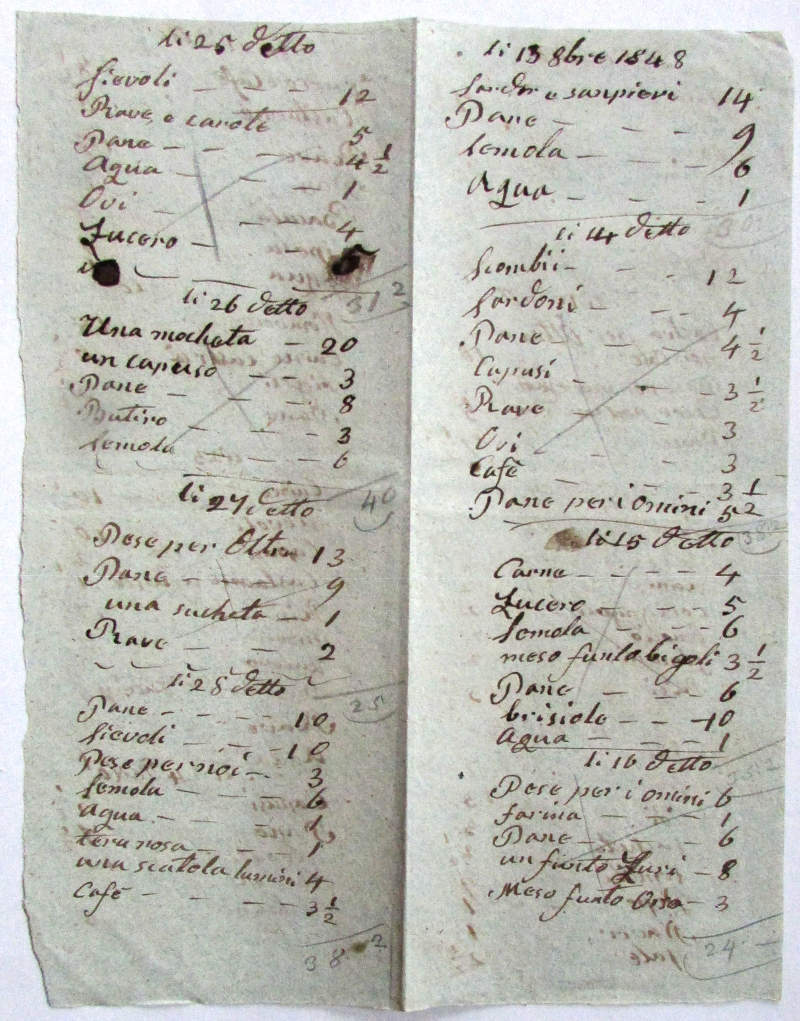 li 25 detto
Sievoli - - - 12
Rave, e carote 5
Pane - - - 4 1/2
Aqua - - - 1
Ovi - - - 4
Zucero - - 5
31 2
li 26 detto
Una mocheta - 20
un capuso - - 3
Pane - - - 8
Butiro - - - 3
Semola - - - 6
40
li 27 detto
Pese per Oltra 13
Pane - - - 9
una sucheta - 1
Rave - - - 2
25
li 28 detto
Pane - - - 10
Sievoli - - - 10
Pese per noi - 3
Semola - - - 6
Aqua - - - 1
tera rosa - - - 1
una scatola lumini 4
Café - - - 3 1/2
38 2
li 13 8bre 1848
Sardon e sanpieri 14
Pane - - - 9
Semola - - - 6
Aqua - - - 1
30
li 14 detto
Scombri - - - 12
Sardoni - - - 4
Pane - - - 4 1/2
Capusi - - - 3 1/2
Rave - - - 3
Ovi - - - 3
Café - - - 3 1/2
Pane per i omini 5
38 2
li 15 detto
Carne - - - - 4
Zucero - - - 5
Semola - - - 6
meso funto bigoli 3 1/2
Pane - - - 6
brisiole - - - 10
Aqua - - - 1
li 16 detto
Pese per i omini 6
farina - - - 1
Pane - - - 6
un funto Zuri - 8
Meso funto Orso - 3
24 -